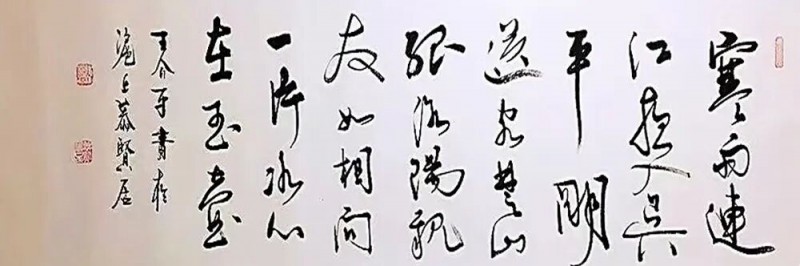 寒雨連
江夜入吳
平明
送客楚山
孤洛陽親
友如相問
一片冰心
在玉壺
王介書於
滬上慕賢居